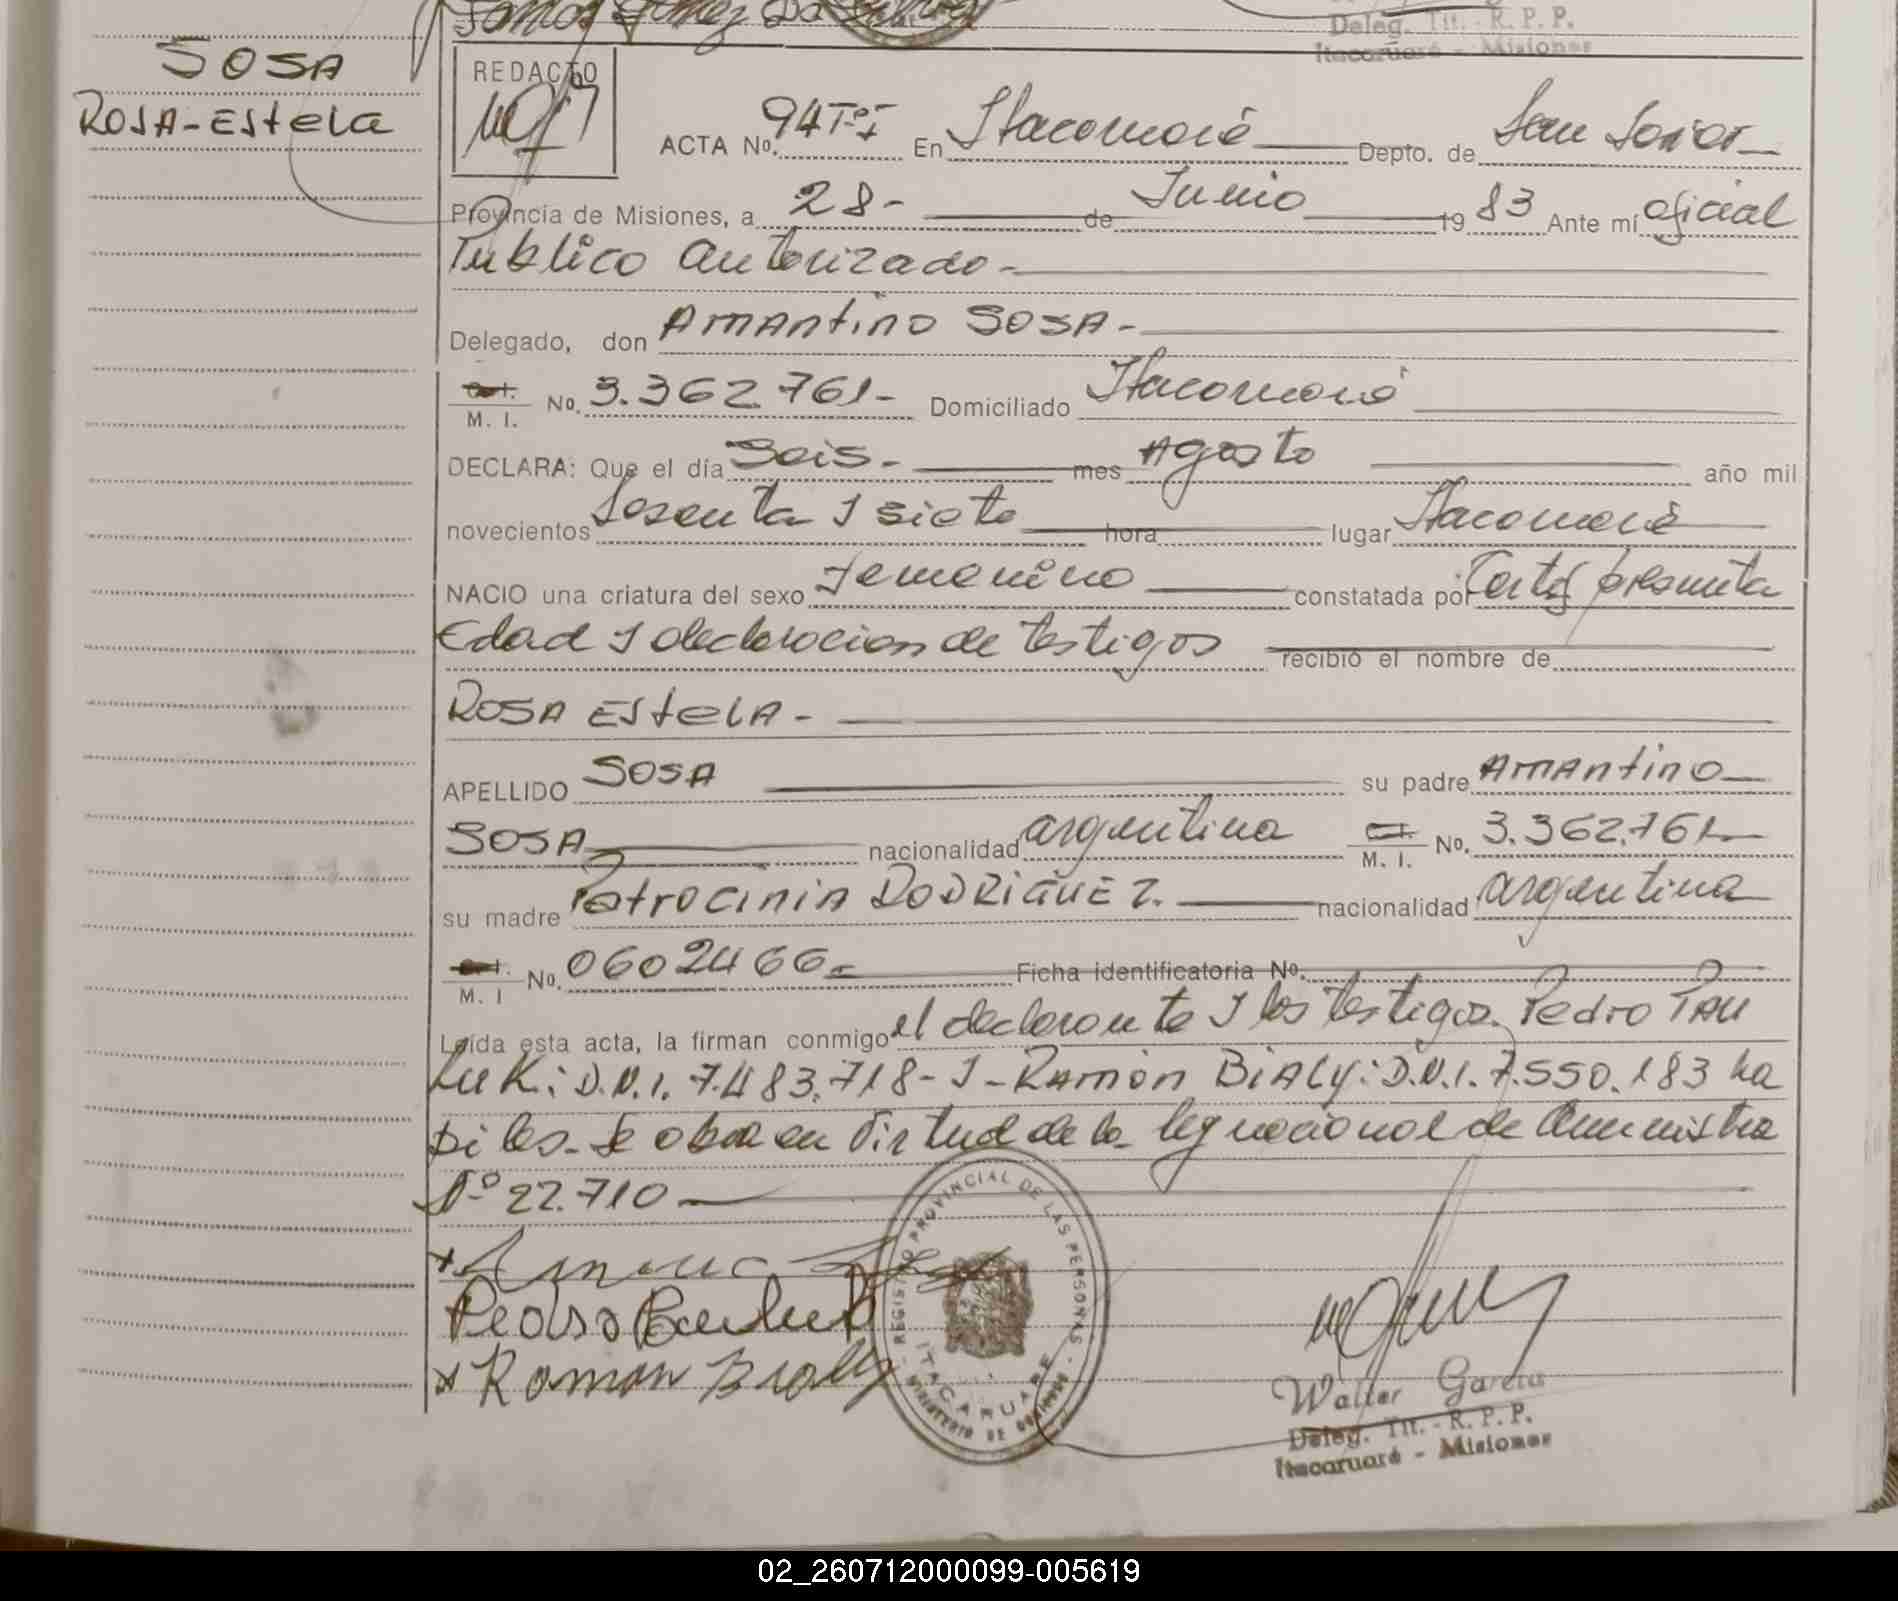 Deleg. Tit. - R. P. P.
Itacaruaré - Misiones
SOSA
ROSA-EStela
REDACTO
ACTA No. 94 T-I En Itacaruaré Depto. de San Javier
Provincia de Misiones, a 28- de Junio 19 83 Ante mí oficial
Publico autorizado-
Delegado, don AMANtiNO SOSA-
M. I. No. 3.362 761- Domiciliado Itacaruaré
DECLARA: Que el día Seis- mes Agosto año mil
novecientos Sesenta I siete hora lugar Itacaruaré
NACIO una criatura del sexo femenino constatada por Certf presunta
Edad I declaracion de testigos recibió el nombre de
ROSA EStelA-
APELLIDO SOSA su padre AMANtiNO
SOSA nacionalidad argentina M. I. No. 3.362.761-
su madre PatrociniA RODRIGUEZ. nacionalidad argentina
M. I No. 0602466- Ficha identificatoria No.
Leída esta acta, la firman conmigo el declarante I los testigos Pedro PAU
LuK: D.N.I. 7.483.718- I - RAmón BiALy: D.N.I. 7.550.183 ha
biles- Se obra en Virtud de la ley nacional de Amnistia
Nº 22.710
Pedro Pauluk
Ramon Bialy
REGISTRO PROVINCIAL DE LAS PERSONAS
ITACARUARE
MINISTERIO DE GOBIERNO
Walter Garcia
Deleg. Tit. - R. P. P.
Itacaruaré - Misiones
02_260712000099-005619